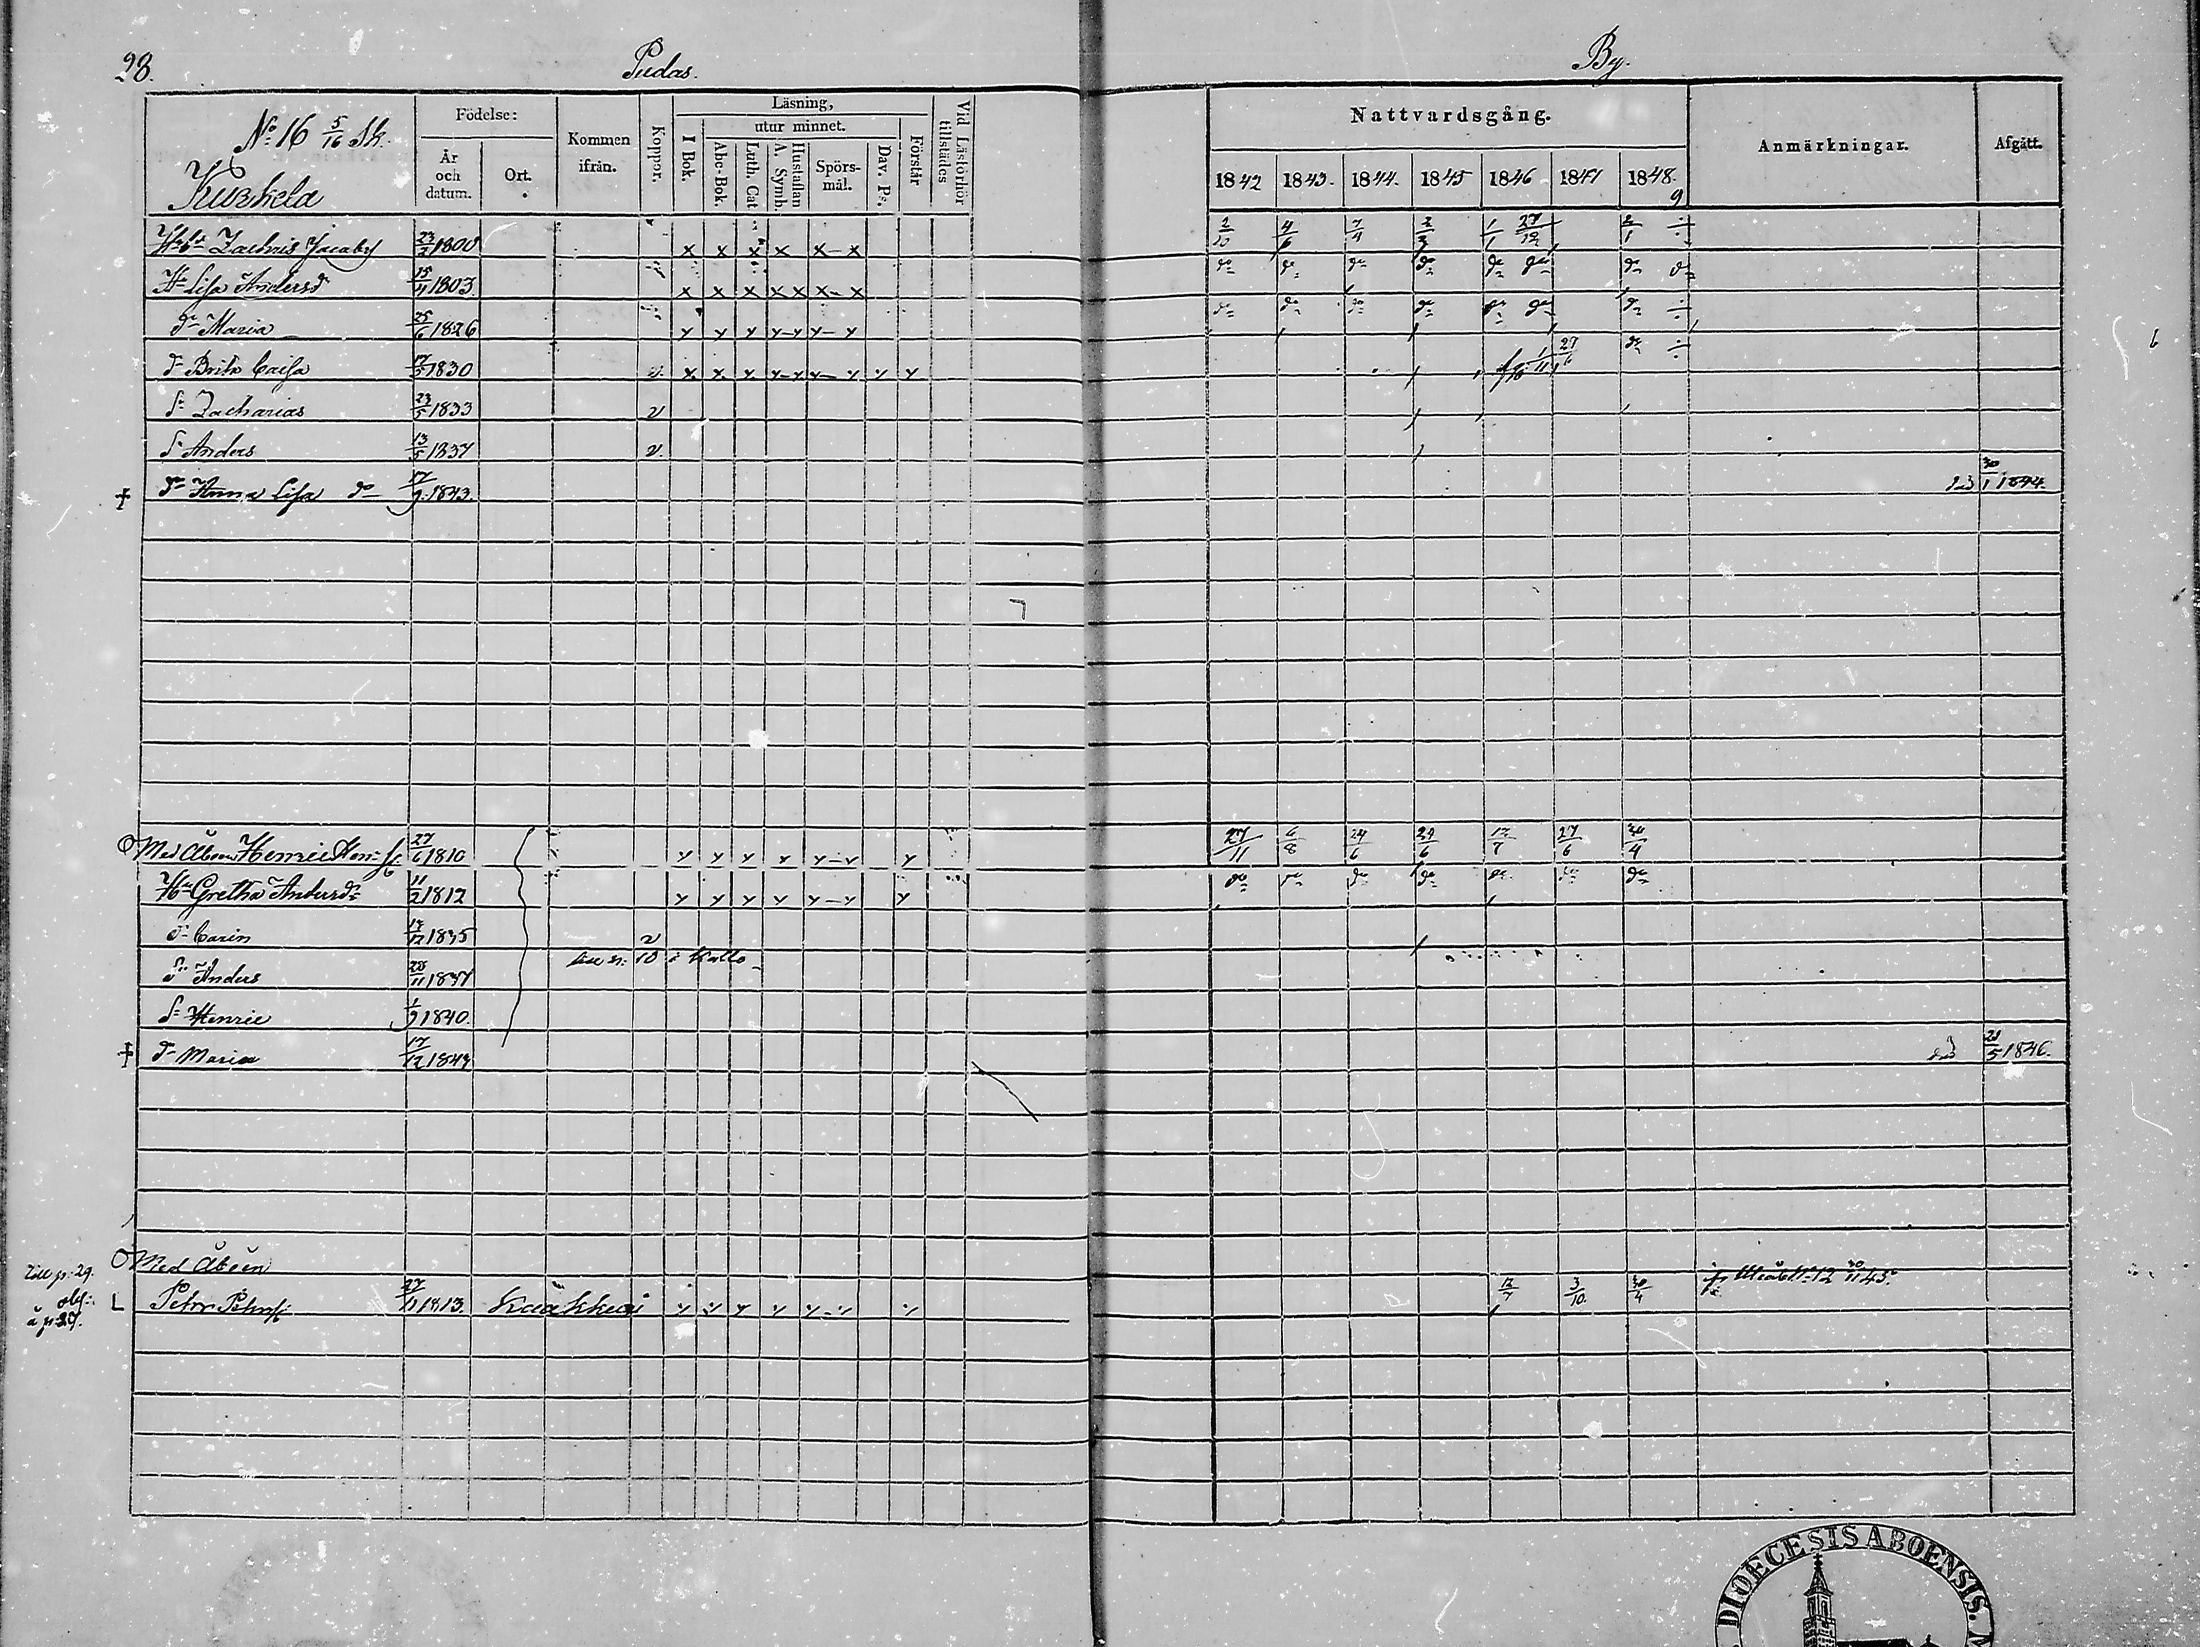 28. Pudas. By.
No: 16 5/16 Sk.
Kurkela
Födelse:
År och datum.
Ort.
Kommen ifrån.
Koppor.
Läsning,
utur minnet.
I Bok.
Abc-Bok.
Luth. Cat
A. Symb.
Hustaflan
Spörs-mål.
Dav. Ps.
Förstår
Vid Läsförhör tillstädes
Nattvardsgång.
1842 1843. 1844. 1845 1846 1847 1848. 9
Anmärkningar.
Afgått.
Zachris Jacobs 23/2 1800 x x x x x-x 4/6 7/4 1/1 27/12 2/1 ÷
Hu Lisa Andersd 15/11 1803. x x x x x x-x do do do do do do do do
dr Maria 25/6 1826 y y y y-y y-y do do do do do do do ÷
dr Brita Caisa 17/5 1830 v. x. y. y y-y y-y y y 1/11 27/6 do ÷
Sn Zacharias 23/5 1833 v
Sn Anders 13/5 1837 v.
† dr Anna Lisa do 17/9 1843. död 30/1 1844.
Med Åboen Henric Henr:s. 27/6 1810 y y y y y-y y 27/11 6/8 24/6 24/6 12/7 27/6 30/4
Hu Gretha Andersdr 11/2 1812 y y y y y-y y do do do do do do do
dr Carin 17/12 1835 v
Sn Anders 28/11 1837 10 i Kallo
Sn Henric 1/9 1840.
† dr Maria 17/12 1844 död 21/5 1846.
Med Åboen
Till p: 29.
å p: 27. L Petter Petters: 27/11 1813. Kaakkuri y y y y y-y y 12/7 3/10. 30/4 No 12 30/11 45.
DIOECESIS ABOENSIS.